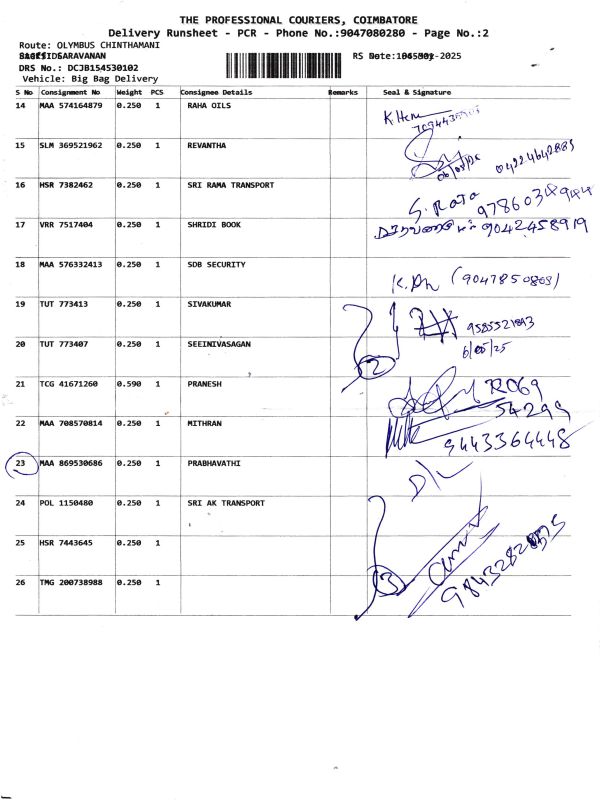 THE PROFESSIONAL COURIERS, COIMBATORE
Delivery Runsheet - PCR - Phone No.:9047080280 - Page No.:2
Route: OLYMBUS CHINTHAMANI
SARAVANAN
RS -2025
DRS No.: DCJB154530102
Vehicle: Big Bag Delivery
S No Consignment No Weight PCS Consignee Details Remarks Seal & Signature
14 MAA 574164879 0.250 1 RAHA OILS
15 SLM 369521962 0.250 1 REVANTHA 04224642885
16 HSR 7382462 0.250 1 SRI RAMA TRANSPORT S. Raja
17 VRR 7517404 0.250 1 SHRIDI BOOK 9042458919
18 MAA 576332413 0.250 1 SDB SECURITY (9047850808)
19 TUT 773413 0.250 1 SIVAKUMAR
20 TUT 773407 0.250 1 SEEINIVASAGAN 2
21 TCG 41671260 0.590 1 PRANESH
22 MAA 708570814 0.250 1 MITHRAN 9443364448
23 MAA 869530686 0.250 1 PRABHAVATHI D/L
24 POL 1150480 0.250 1 SRI AK TRANSPORT
25 HSR 7443645 0.250 1 3
26 TMG 200738988 0.250 1